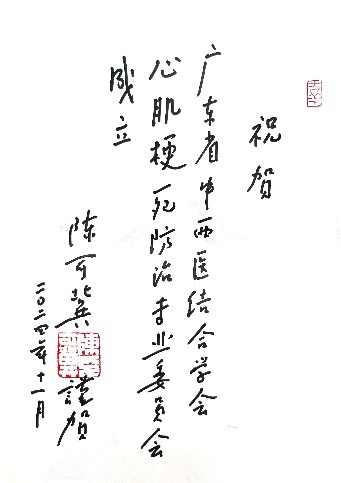 祝贺
广东省中西医结合学会
心肌梗死防治专业委员会
成立
陈可冀谨贺
二〇二四年十一月